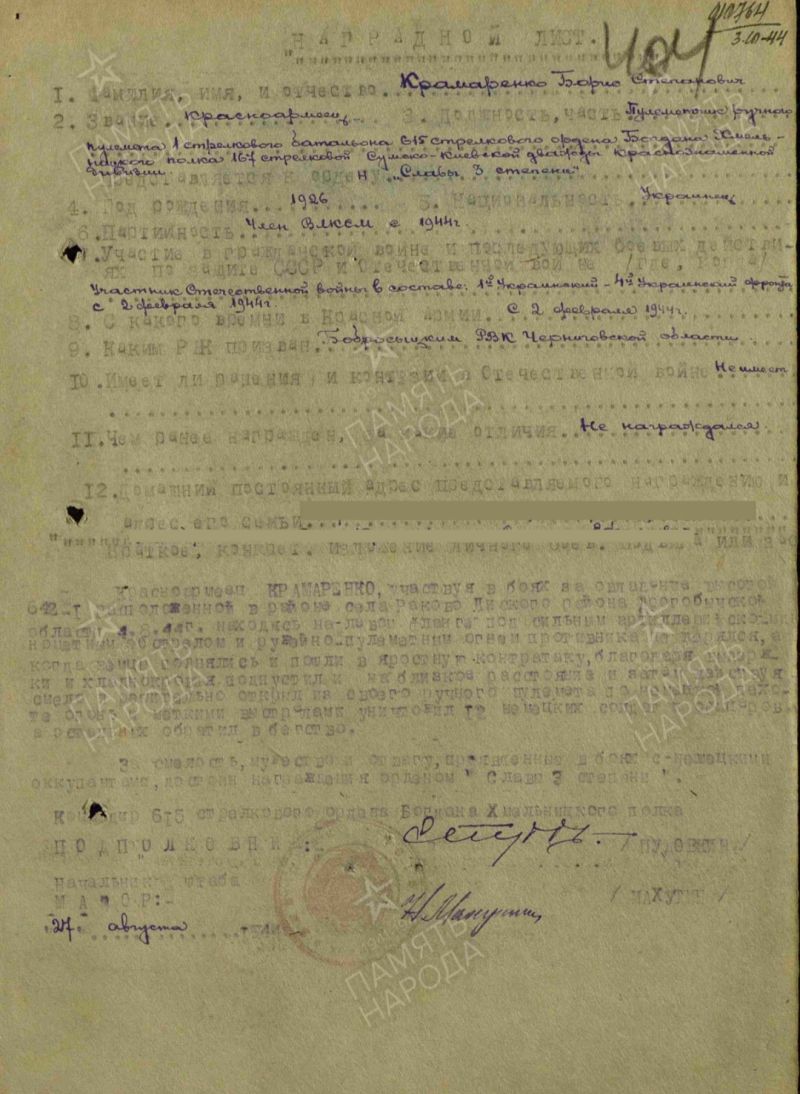 910764
3.10-44
НАГРАДНОЙ ЛИСТ.
1. Фамилия, имя, и отчество...Крамаренко Борис Степанович
2. Звание Красноармеец 3. Должность, часть Пулеметчик ручного
пулемета 1 стрелкового батальона 615 стрелкового ордена Богдана Хмель-
ницкого полка 167 стрелковой Сумско-Киевской дважды Краснознаменной
дивизии
представляется к ордену "Славы 3 степени"
4. Год рождения 1926 5. Национальность Украинец
6. Партийность Член ВЛКСМ с 1944г
7. Участие в гражданской войне и последующих боевых действи-
ях по защите СССР и Отечественной войне /где, когда/
Участник Отечественной войны в составе: 1й Украинский - 4й Украинский фронта
с 2 февраля 1944г.
8. С какого времени в Красной армии С 2 февраля 1944г.
9. Каким РВК призван Бобровицким РВК Черниговской области
10. Имеет ли ранения и контузии в Отечественной войне Не имеет
11. Чем ранее награжден, за какие отличия Не награждался
12. Домашний постоянный адрес представляемого к награждению и
адрес его семьи
Краткое, конкрет. изложение личного боев. подвига или
Красноармеец КРАМАРЕНКО, участвуя в боях за овладение высотой
642.1 расположенной в районе села Раково Лиского района Дрогобычской
области 4.8.44г. находясь на левом фланге под сильным артиллерийско-ми-
нометным обстрелом и ружейно-пулеметным огнем противника не терялся, а
когда немцы поднялись и пошли в яростную контратаку, благодаря выдерж-
ки и хладнокровия подпустил их на близкое расстояние и затем действуя
смело и решительно открыл из своего ручного пулемета по немецкой пехо-
те огонь и меткими выстрелами уничтожил 12 немецких солдат и офицеров
а остальных обратил в бегство.
За смелость, мужество и отвагу, проявленные в боях с немецкими
оккупантами, достоин награждения орденом "Слава 3 степени".
Командир 615 стрелкового ордена Богдана Хмельницкого полка
ПОДПОЛКОВНИК: /ПУДОВКИН/
Начальник штаба
МАЙОР:- Н. Махутин /МАХУТИН/
"27" августа
ПАМЯТЬ НАРОДА
ПАМЯТЬ НАРОДА
ПАМЯТЬ НАРОДА
ПАМЯТЬ НАРОДА
ПАМЯТЬ НАРОДА